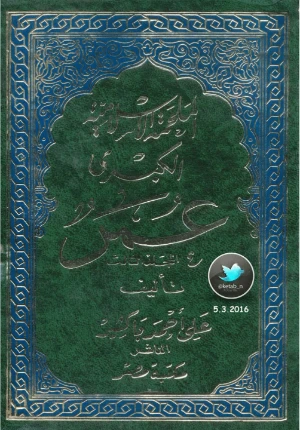 الملحمة الإسلامية
الكبرى
عمر
تأليف
علي أحمد باكثير
الناشر
مكتبة مصر
@ketab_n
5.3.2016